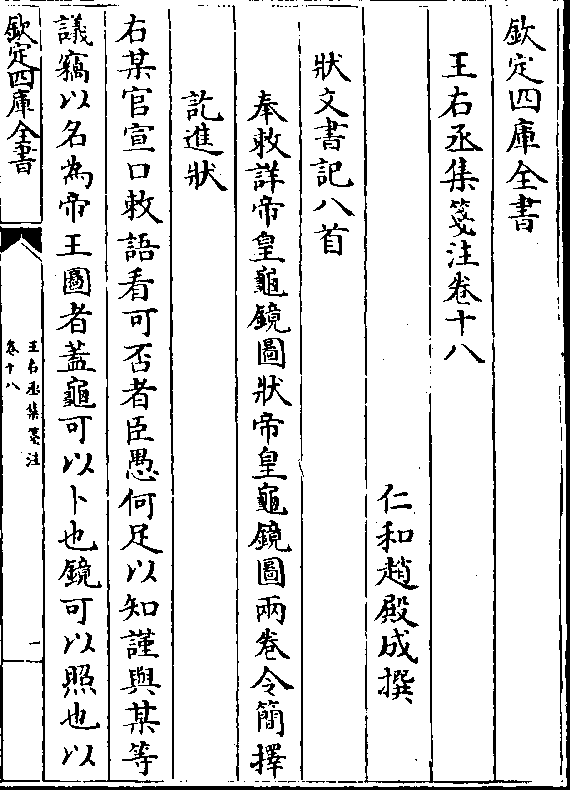 欽定四庫全書
王右丞集箋注卷十八
仁和趙殿成撰
狀文書記八首
奉敕詳帝皇龜鏡圖狀帝皇龜鏡圖兩卷令簡擇
訖進狀
右某官宣口敕語看可否者臣愚何足以知謹與某等
議竊以名為帝王圖者蓋龜可以卜也鏡可以照也以
欽定四庫全書
王右丞集箋注
卷十八
一